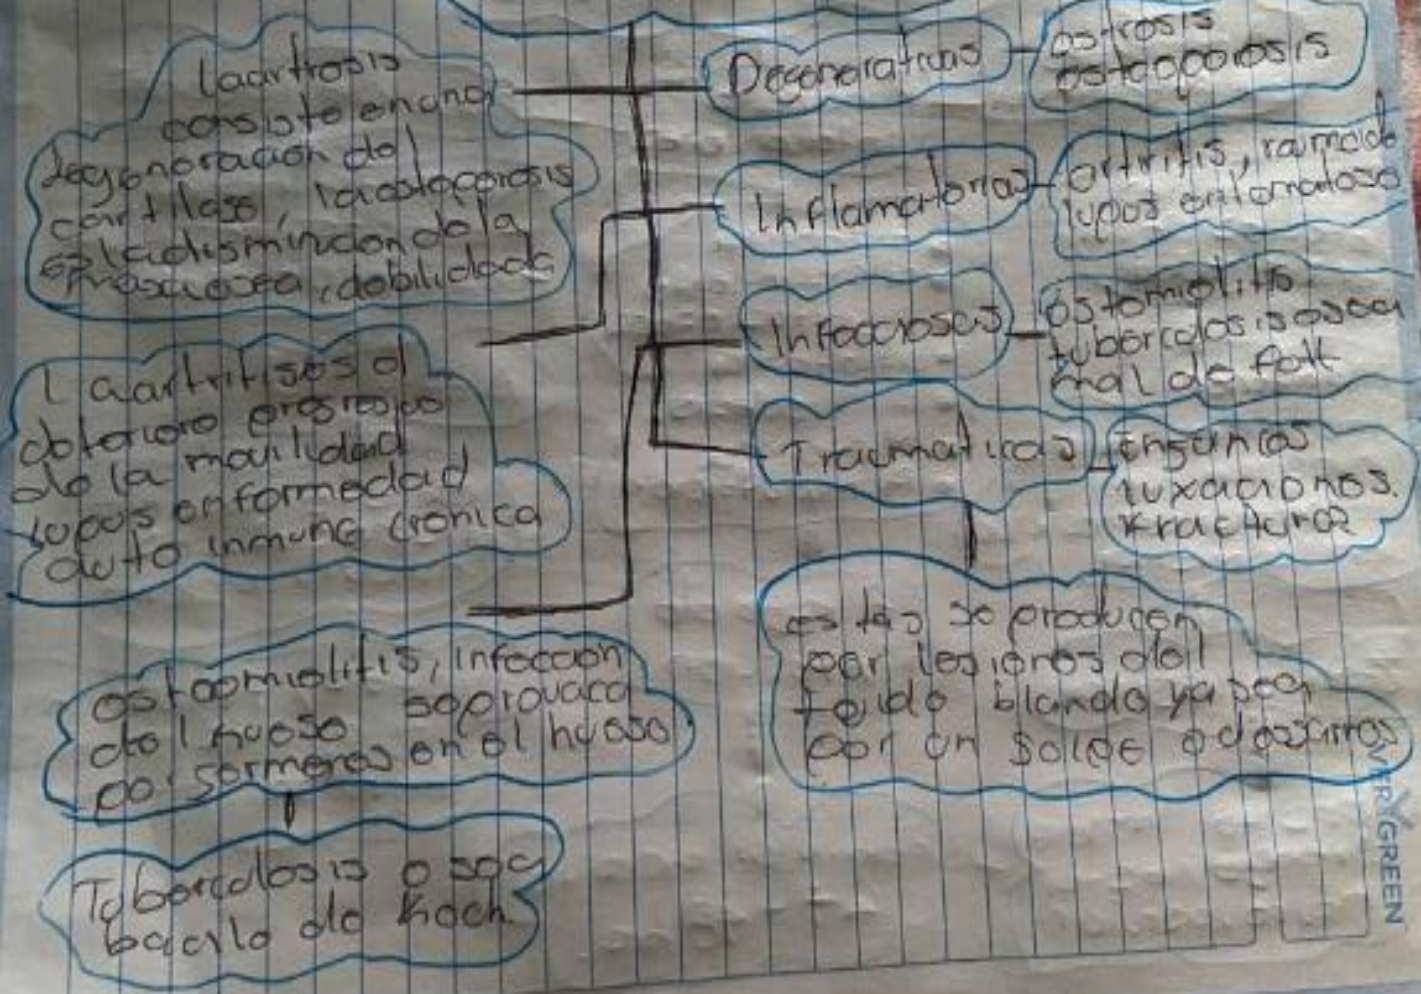 La artrosis
consiste en una
degeneracion del
cartilago, la ostoporosis
es la disminucion de la
masa osea, debilidad
Degenerativas
ostrosis
osteoporosis
Inflamatorias
artritis,
lupos
Infecciosas
ostomielitis
tuborculosis osea
mal de Pott
Traumaticas
luxaciones.
fracturas
La artritis es el
deterioro progresivo
de la movilidad
lupus enfermedad
auto inmune cronica
estas se producen
por lesiones del
tejido blando ya sea
por un golpe o desgarros
ostoomielitis, infeccion
del hueso se provaca
por germenes en el hueso
Tuborculosis o sea
bacilo de Koch.
EVERGREEN